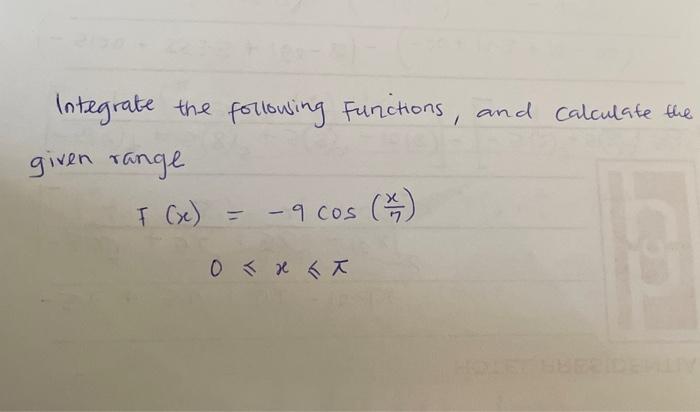 Integrate the following Functions, and calculate the
given range
F (x) = -9 cos (x/7)
0 ≤ x ≤ π